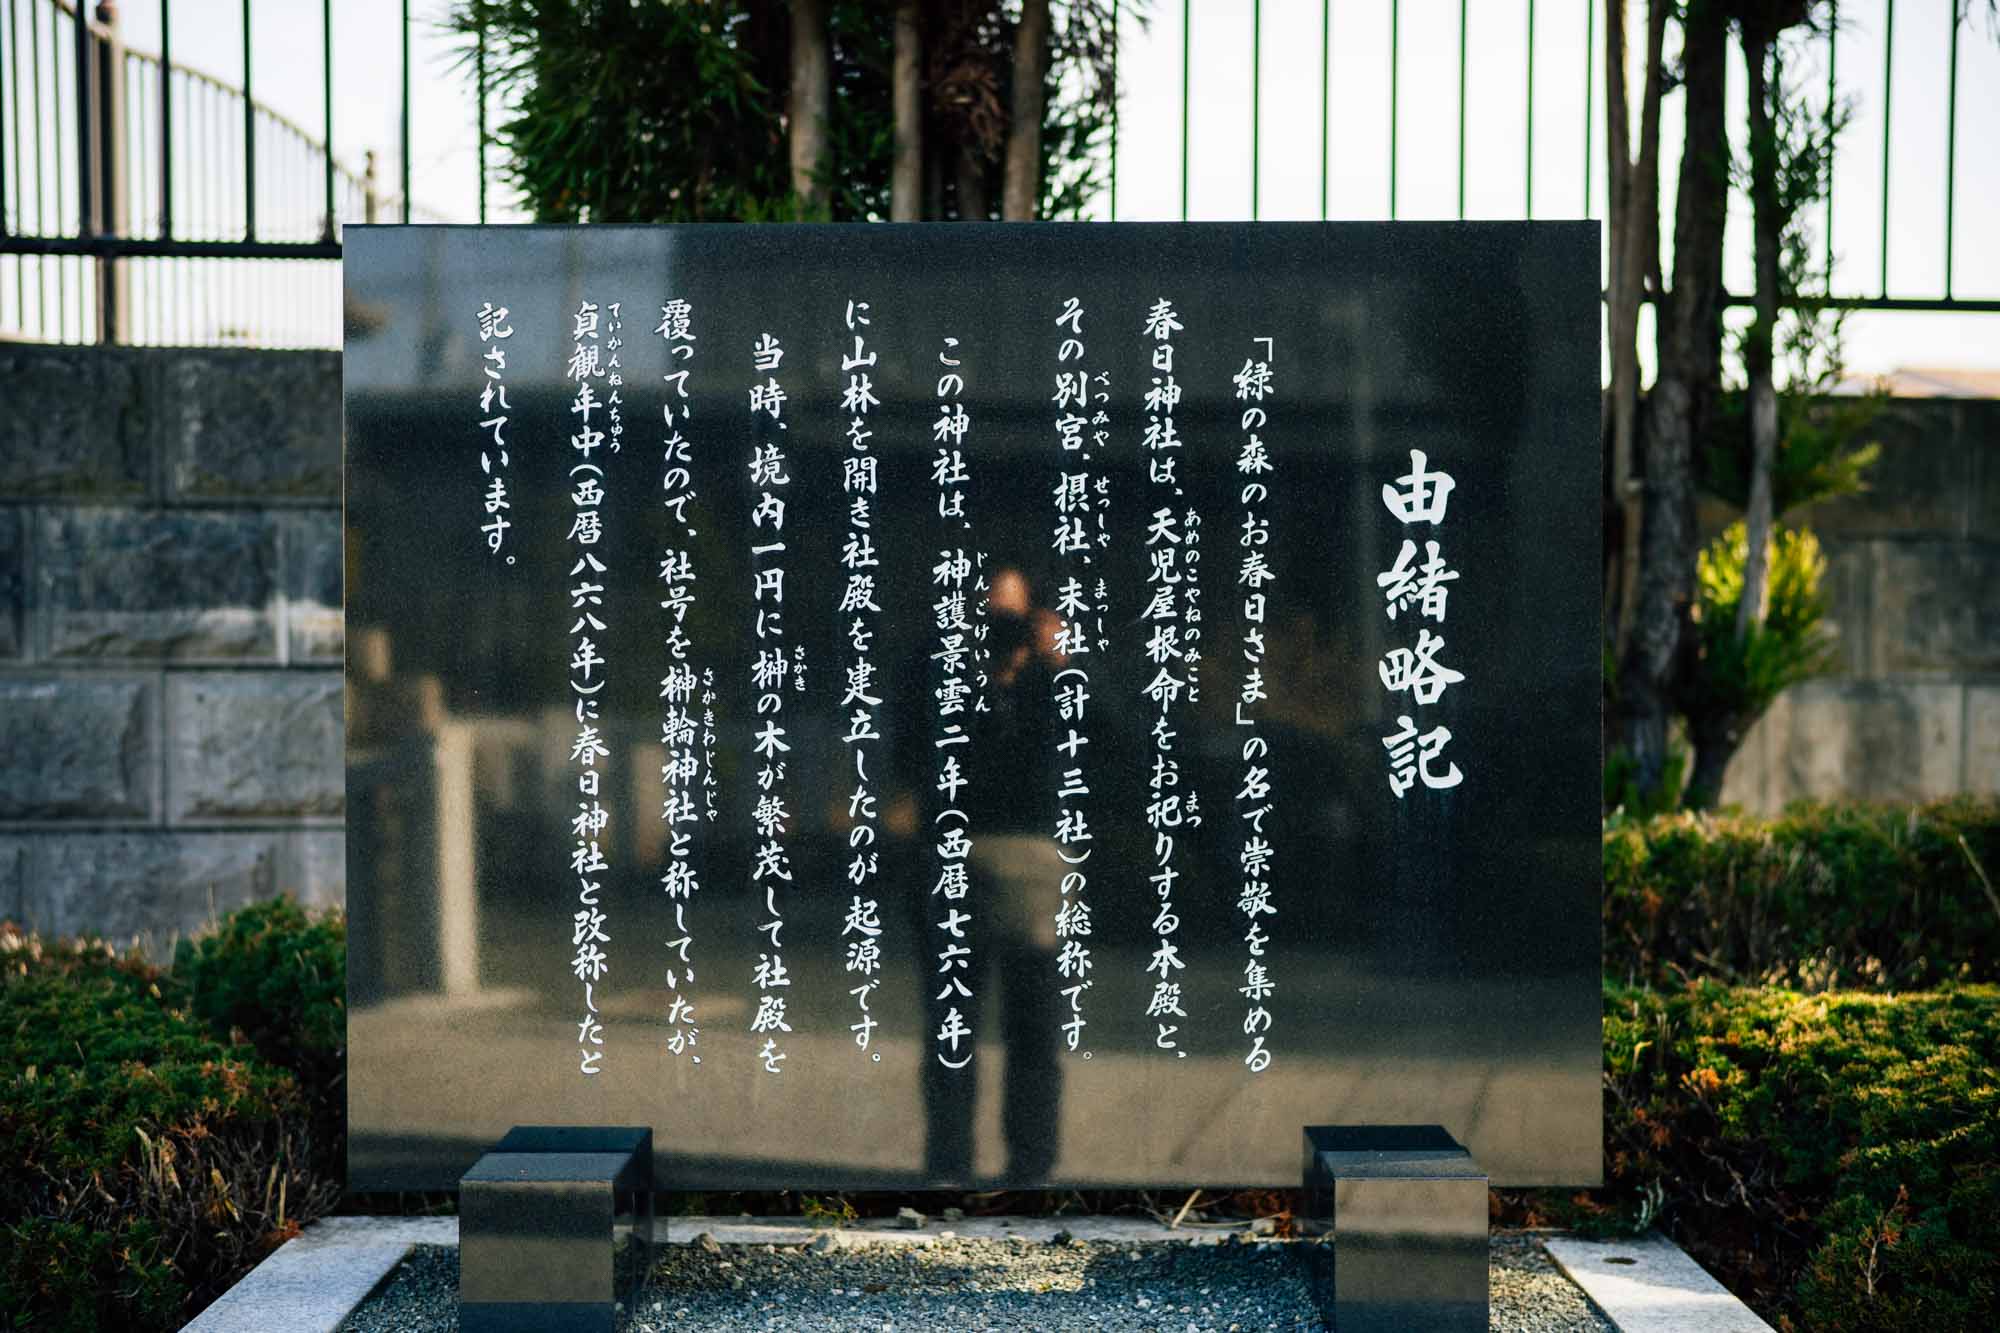 由緒略記
「緑の森のお春日さま」の名で崇敬を集める
春日神社は、天児屋根命をお祀りする本殿と、
あめのこやねのみこと
まつ
その別宮、摂社、末社(計十三社)の総称です。
べつみや
せっしゃ
まっしゃ
この神社は、神護景雲二年(西暦七六八年)
じんごけいうん
に山林を開き社殿を建立したのが起源です。
当時、境内一円に榊の木が繁茂して社殿を
さかき
覆っていたので、社号を榊輪神社と称していたが、
さかきわじんじゃ
貞観年中(西暦八六八年)に春日神社と改称したと
ていかんねんちゅう
記されています。